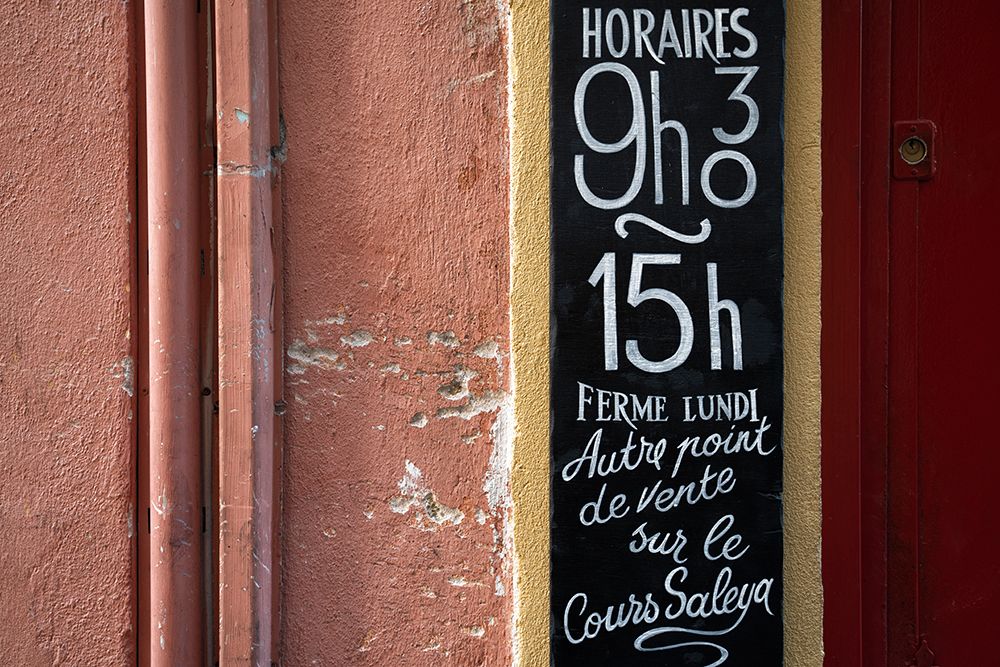 HORAIRES
9h30
~
15h
FERME LUNDI
Autre point
de vente
sur le
Cours Saleya